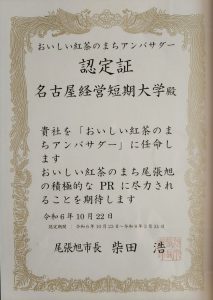 おいしい紅茶のまちアンバサダー
認定証
名古屋経営短期大学殿
貴社を「おいしい紅茶のま
ちアンバサダー」に任命し
ます
おいしい紅茶のまち尾張旭
の積極的な PR に尽力され
ることを期待します
令和6年10月22日
認定期間 : 令和6年10月23日~令和9年3月31日
尾張旭市長 柴田 浩